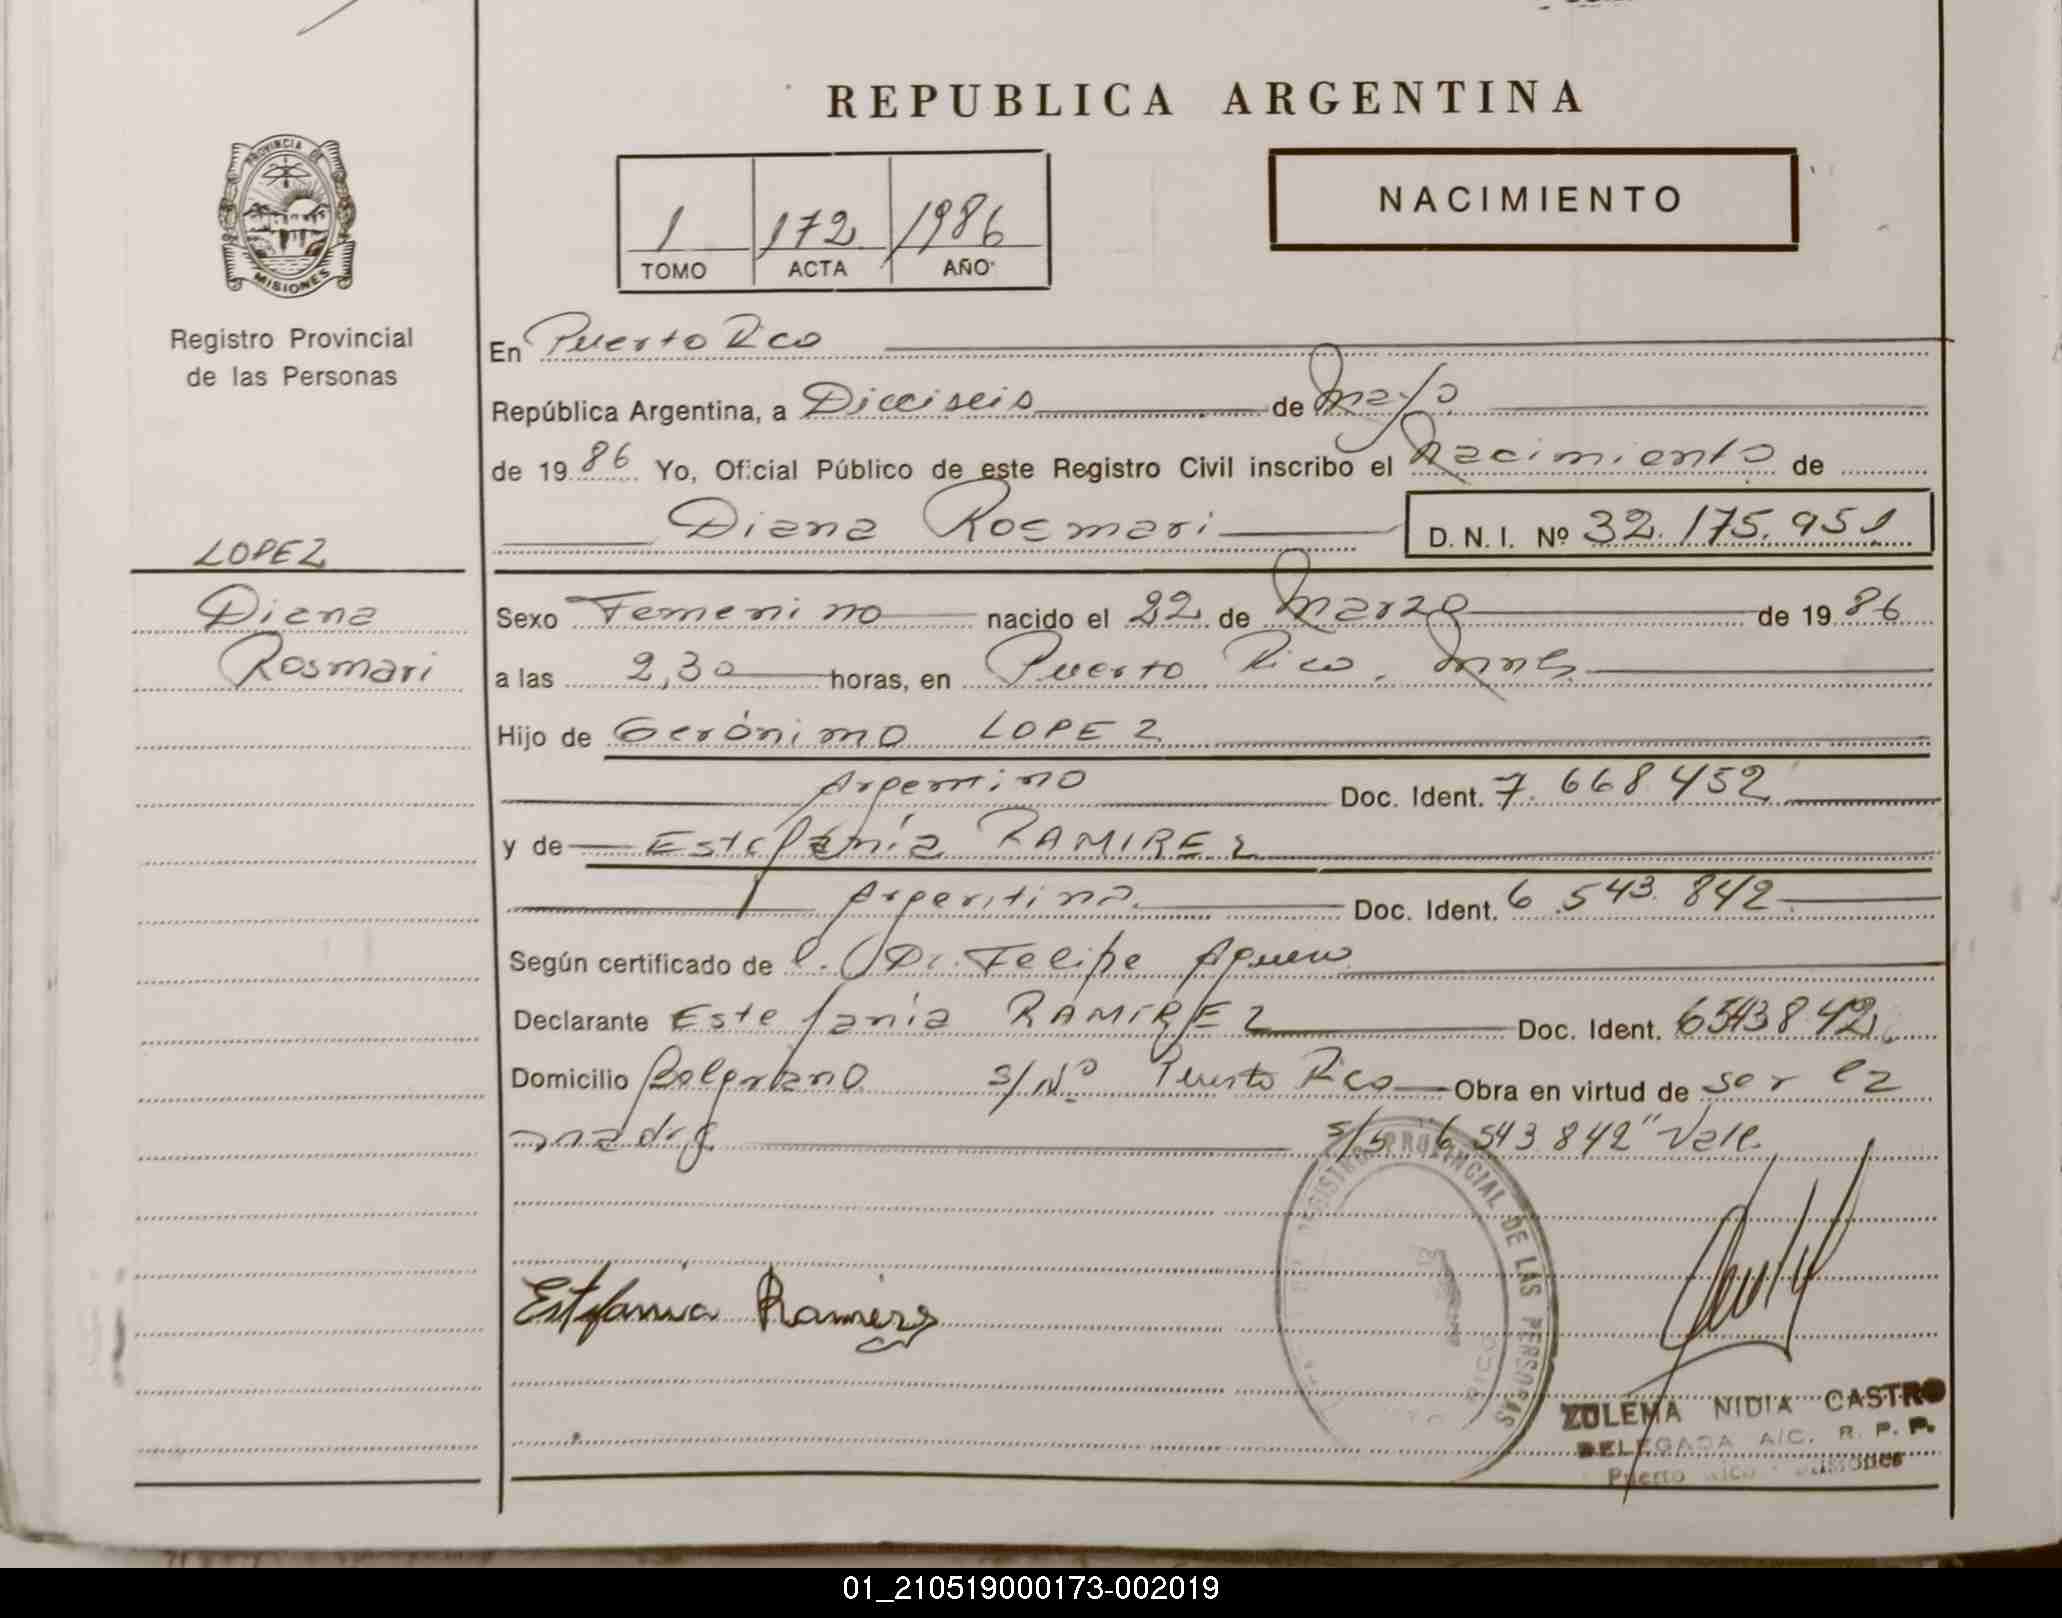 REPUBLICA ARGENTINA
PROVINCIA DE
MISIONES
Registro Provincial
de las Personas
1 172 1986
TOMO ACTA AÑO
NACIMIENTO
En Puerto Rico
República Argentina, a Dieciseis de Mayo
de 19 86 Yo, Oficial Público de este Registro Civil inscribo el Nacimiento de
Diana Rosmari D. N. I. Nº 32.175.951
LOPEZ
Diana
Rosmari
Sexo Femenino nacido el 22 de Marzo de 19 86
a las 2,30 horas, en Puerto Rico, Mnes
Hijo de Gerónimo LOPEZ
Argentino Doc. Ident. 7.668.452
y de Estefanía RAMIREZ
Argentina Doc. Ident. 6.543.842
Según certificado de Dr. Felipe Aguero
Declarante Estefanía RAMIREZ Doc. Ident. 6543842
Domicilio Belgrano s/Nº Puerto Rico Obra en virtud de ser la
madre s/s 6 543 842" Vale
REGISTRO PROVINCIAL DE LAS PERSONAS
Estefania Ramirez
ZULEMA NIDIA CASTRO
DELEGADA A/C. R. P. P.
Puerto Rico Misiones
01_210519000173-002019